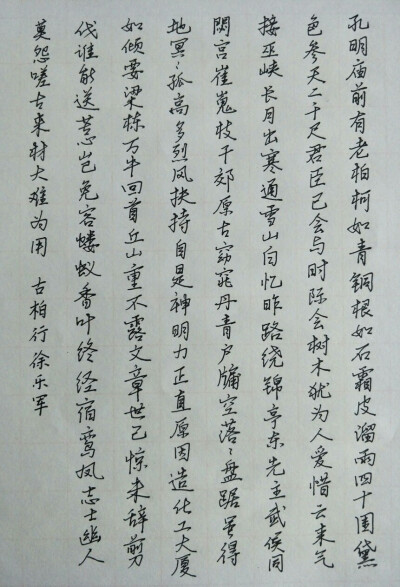 孔明庙前有老柏柯如青铜根如石霜皮溜雨四十围黛
色参天二千尺君臣已会与时际会树木犹为人爱惜云来气
接巫峡长月出寒通雪山白忆昨路绕锦亭东先主武侯同
閟宫崔嵬枝干郊原古窈窕丹青户牖空落〻盘踞虽得
地冥〻孤高多烈风扶持自是神明力正直原因造化工大厦
如倾要梁栋万牛回首丘山重不露文章世已惊未辞剪
伐谁能送苦岂免容蝼蚁香叶终经宿鸾凤志士幽人
莫怨嗟古来材大难为用 古柏行徐乐军